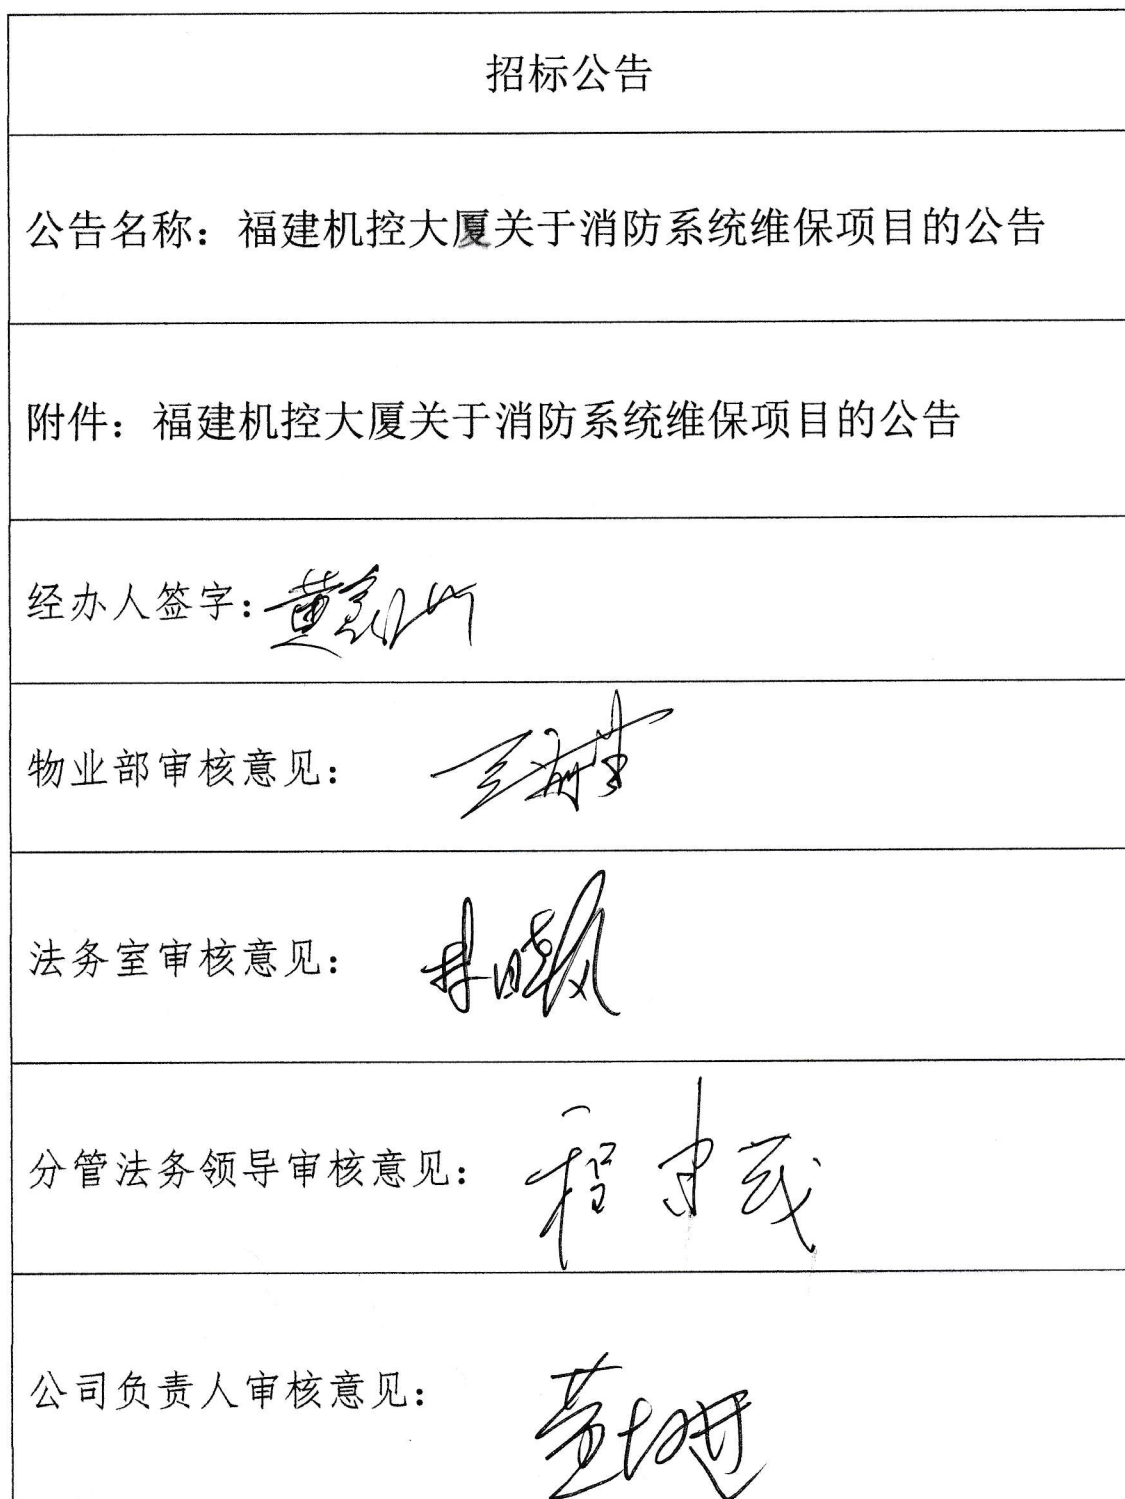 招标公告
公告名称：福建机控大厦关于消防系统维保项目的公告
附件：福建机控大厦关于消防系统维保项目的公告
经办人签字：黄
物业部审核意见：
法务室审核意见：林晓
分管法务领导审核意见：程
公司负责人审核意见：